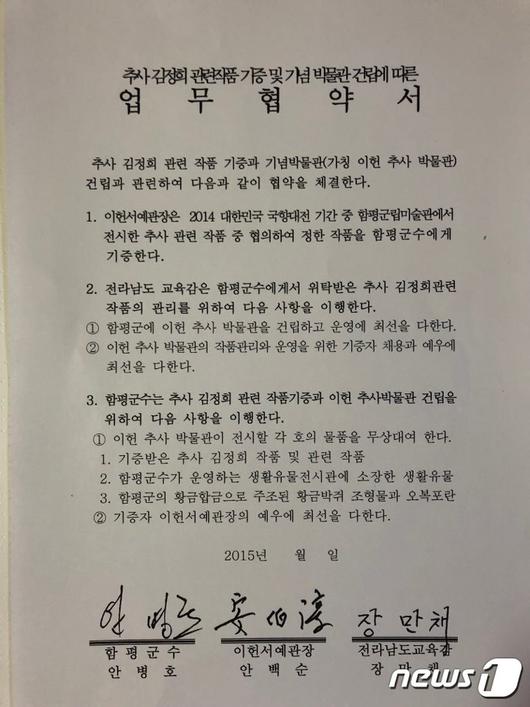 추사 김정희 관련작품 기증 및 기념 박물관 건립에 따른
업 무 협 약 서
추사 김정희 관련 작품 기증과 기념박물관(가칭 이헌 추사 박물관)
건립과 관련하여 다음과 같이 협약을 체결한다.
1. 이헌서예관장은 2014 대한민국 국향대전 기간 중 함평군립미술관에서
전시한 추사 관련 작품 중 협의하여 정한 작품을 함평군수에게
기증한다.
2. 전라남도 교육감은 함평군수에게서 위탁받은 추사 김정희관련
작품의 관리를 위하여 다음 사항을 이행한다.
① 함평군에 이헌 추사 박물관을 건립하고 운영에 최선을 다한다.
② 이헌 추사 박물관의 작품관리와 운영을 위한 기증자 채용과 예우에
최선을 다한다.
3. 함평군수는 추사 김정희 관련 작품기증과 이헌 추사박물관 건립을
위하여 다음 사항을 이행한다.
① 이헌 추사 박물관이 전시할 각 호의 물품을 무상대여 한다.
1. 기증받은 추사 김정희 작품 및 관련 작품
2. 함평군수가 운영하는 생활유물전시관에 소장한 생활유물
3. 함평군의 황금합금으로 주조된 황금박쥐 조형물과 오복포란
② 기증자 이헌서예관장의 예우에 최선을 다한다.
2015년 월 일
안병호 安佰淳 장만채
함평군수 이헌서예관장 전라남도교육감
안 병 호 안 백 순 장 만 채
news1